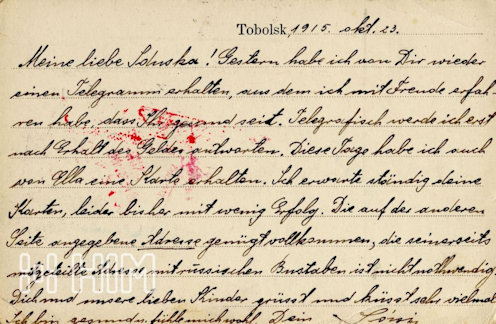 Tobolsk, 1915. okt. 23.
Meine liebe Iduska! Gestern habe ich von Dir wieder
einen Telegramm erhalten, aus dem ich mit Freude erfah-
ren habe, dass Ihr gesund seit. Telegrafisch werde ich erst
nach Erhalt des Geldes antworten. Diese Tage habe ich auch
von Ella eine Karte erhalten. Ich erwarte ständig deine
Karten, leider bisher mit wenig Erfolg. Die auf der anderen
Seite angegebene Adresse genügt vollkommen, die seinerseits
mitgeteilte Adresse mit russischen Bustaben ist nicht nothwendig.
Dich und unsere lieben Kinder grüsst und küsst sehr vielmal
Ich bin gesund u. fühle mich wohl. Dein